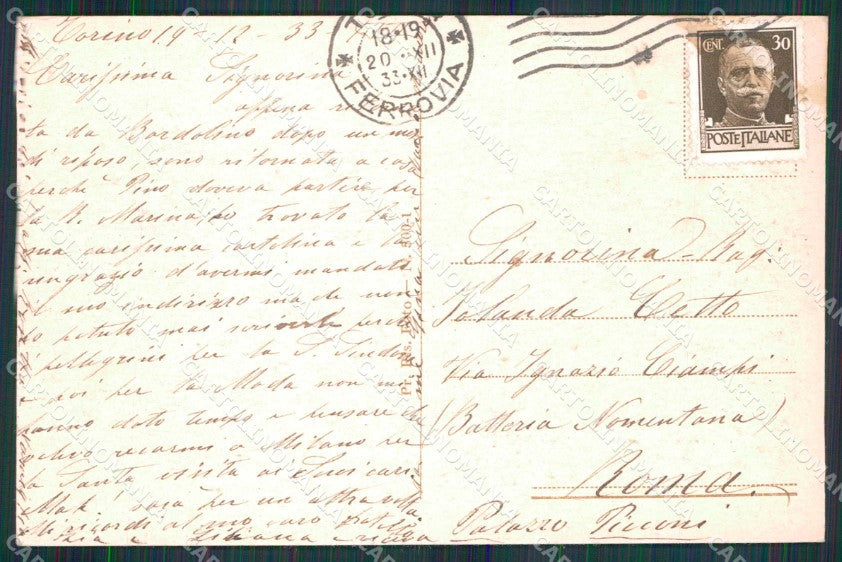 Torino 19 - 12 - 33
Carissima Signorina
appena
ta da Bardolino dopo un
di riposo, sono ritornata a
perchè Pino doveva partire per
la R. Marina, ho trovato la
sua carissima cartolina e la
ringrazio d'avermi mandato
il suo indirizzo ma che non
ho potuto mai scriverle perchè
i pellegrini per la S. Sindone
e poi per la Moda non mi
hanno dato tempo e pensare che
volevo recarmi a Milano per
la Santa visita ai Suoi cari
Mah! sarà per un'altra volta
Mi ricordi al suo caro fratello
Zia e
18-19
20 XII
33·XII
FERROVIA
CENT. 30
POSTE ITALIANE
Signorina Rag:
Jolanda Cetto
Via Ignazio Ciampi
(Batteria Nomentana)
Roma.
Palazzo Picconi
CARTOLINOMANIA